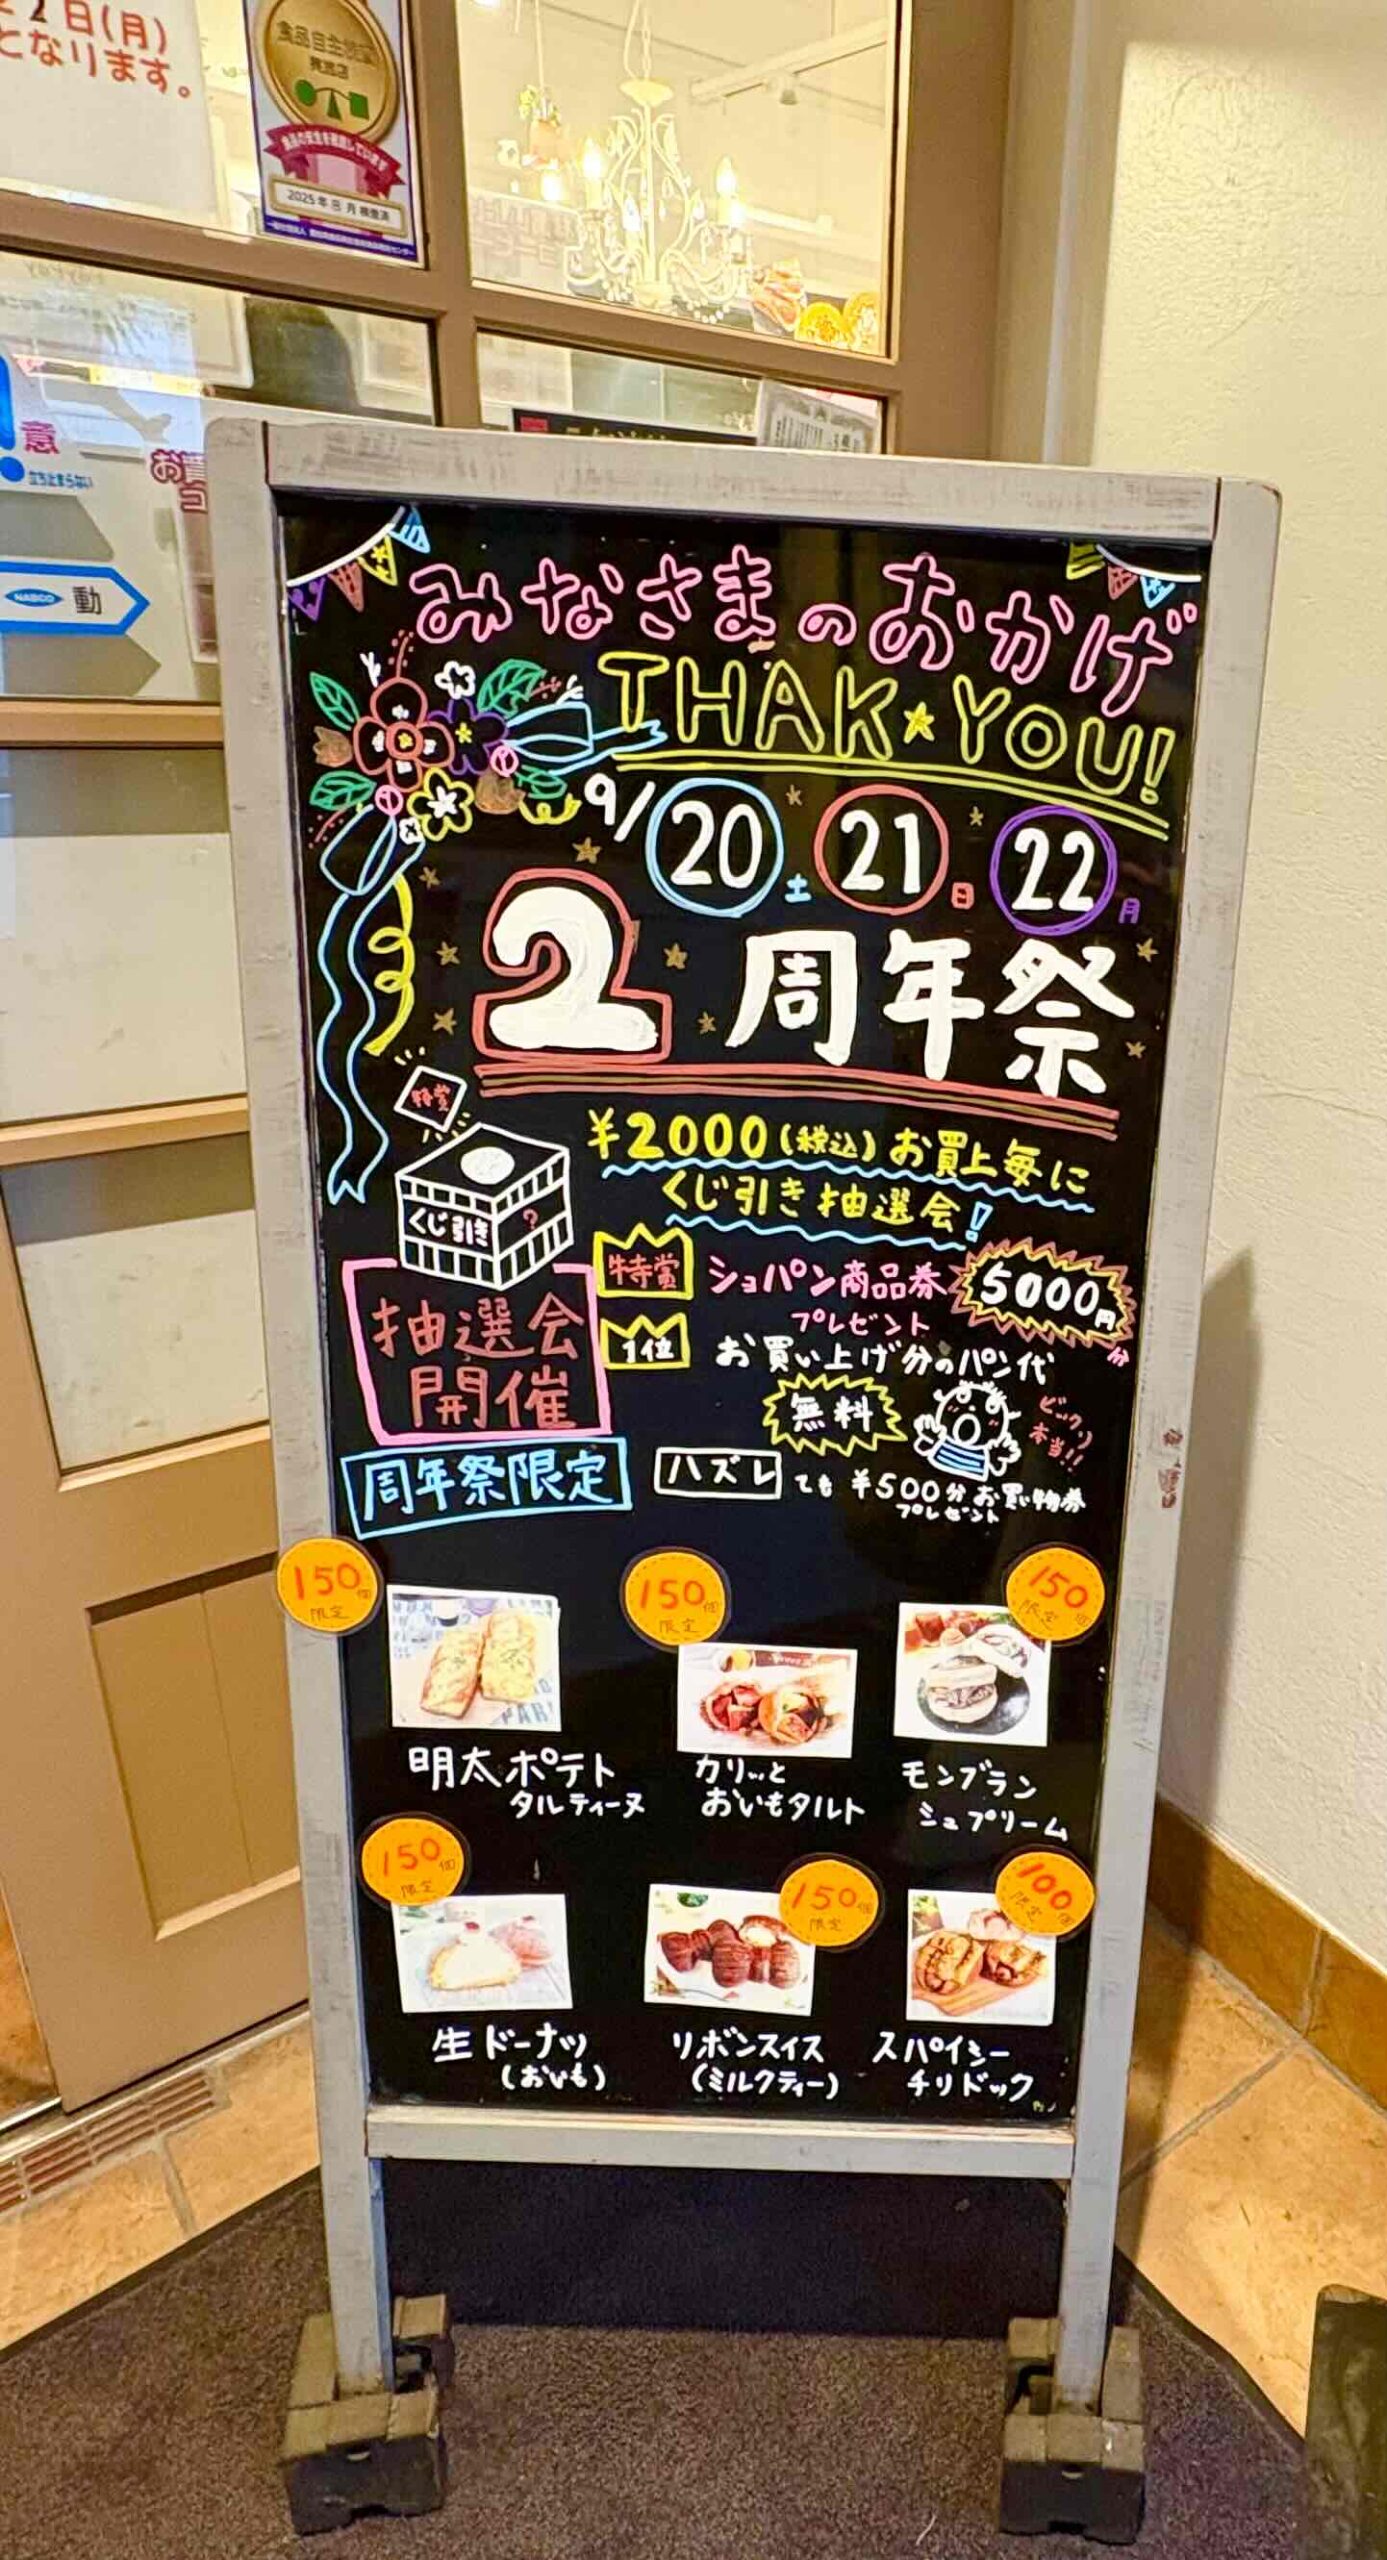 2日(月)
となります。
食品自主検査
実施店
食品の安全を確認しています
2025年8月検査済
意
立ち止まらない
お買
コ
NABCO 動
みなさまのおかげ
THAK★YOU!
9/20土 21日 22月
2周年祭
特賞
¥2000(税込)お買上毎に
くじ引き抽選会!
くじ引き ?
特賞 ショパン商品券 5000円分
プレゼント
抽選会
開催
1位 お買い上げ分のパン代
無料
ビックリ
本当!!
周年祭限定
ハズレ ても ¥500分お買い物券
プレゼント
150個
限定
150個
限定
150個
限定
明太ポテト
タルティーヌ
カリッと
おいもタルト
モンブラン
シュプリーム
150個
限定
150個
限定
100個
限定
生ドーナツ
(おいも)
リボンスイス
(ミルクティー)
スパイシー
チリドック